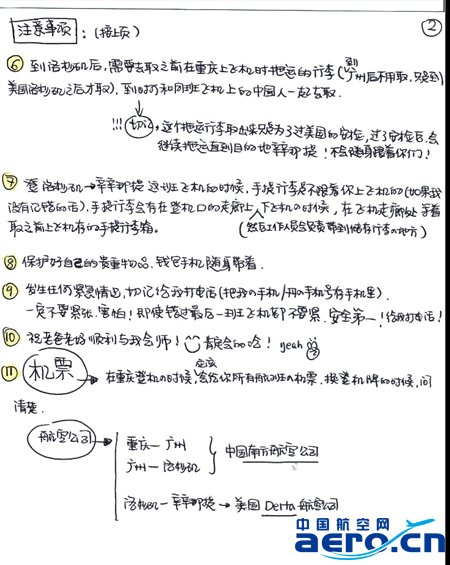 注意事项：(接上页) ②
⑥ 到洛杉矶后，需要去取之前在重庆上飞机时托运的行李（到广州后不用取，只需到
美国洛杉矶之后才取），到时可和同班飞机上的中国人一起去取．
!!! 切记，这个托运行李取出来只是为了过美国的安检，过了安检后,会
继续托运直到目的地辛辛那提！不会随身跟着你们！
⑦ 登洛杉矶→辛辛那提 这班飞机的时候，手提行李是不跟着你上飞机的(如果我
没有记错的话)，手提行李会存在登机口的走廊上，下飞机的时候，在飞机走廊处等着
取之前上飞机存的手提行李箱．
(然后工作人员会负责带到储存行李的地方)
⑧ 保护好自己的贵重物品．钱包手机随身带着．
⑨ 发生任何紧急情况，切记给我打电话(把我的手机/的手机号存手机里)．
一定不要紧张．害怕！即使错过最后一班飞机都不要紧．安全第一！给我打电话！
⑩ 祝老爸老妈顺利与我会师！都会的哈！yeah
⑪ 机票 → 在重庆登机的时候，应该会给你所有航班的机票．换登机牌的时候，问
清楚．
航空公司→
重庆—广州
广州—洛杉矶
中国南方航空公司
洛杉矶—辛辛那提→美国Delta航空公司
中国航空网
aero.cn